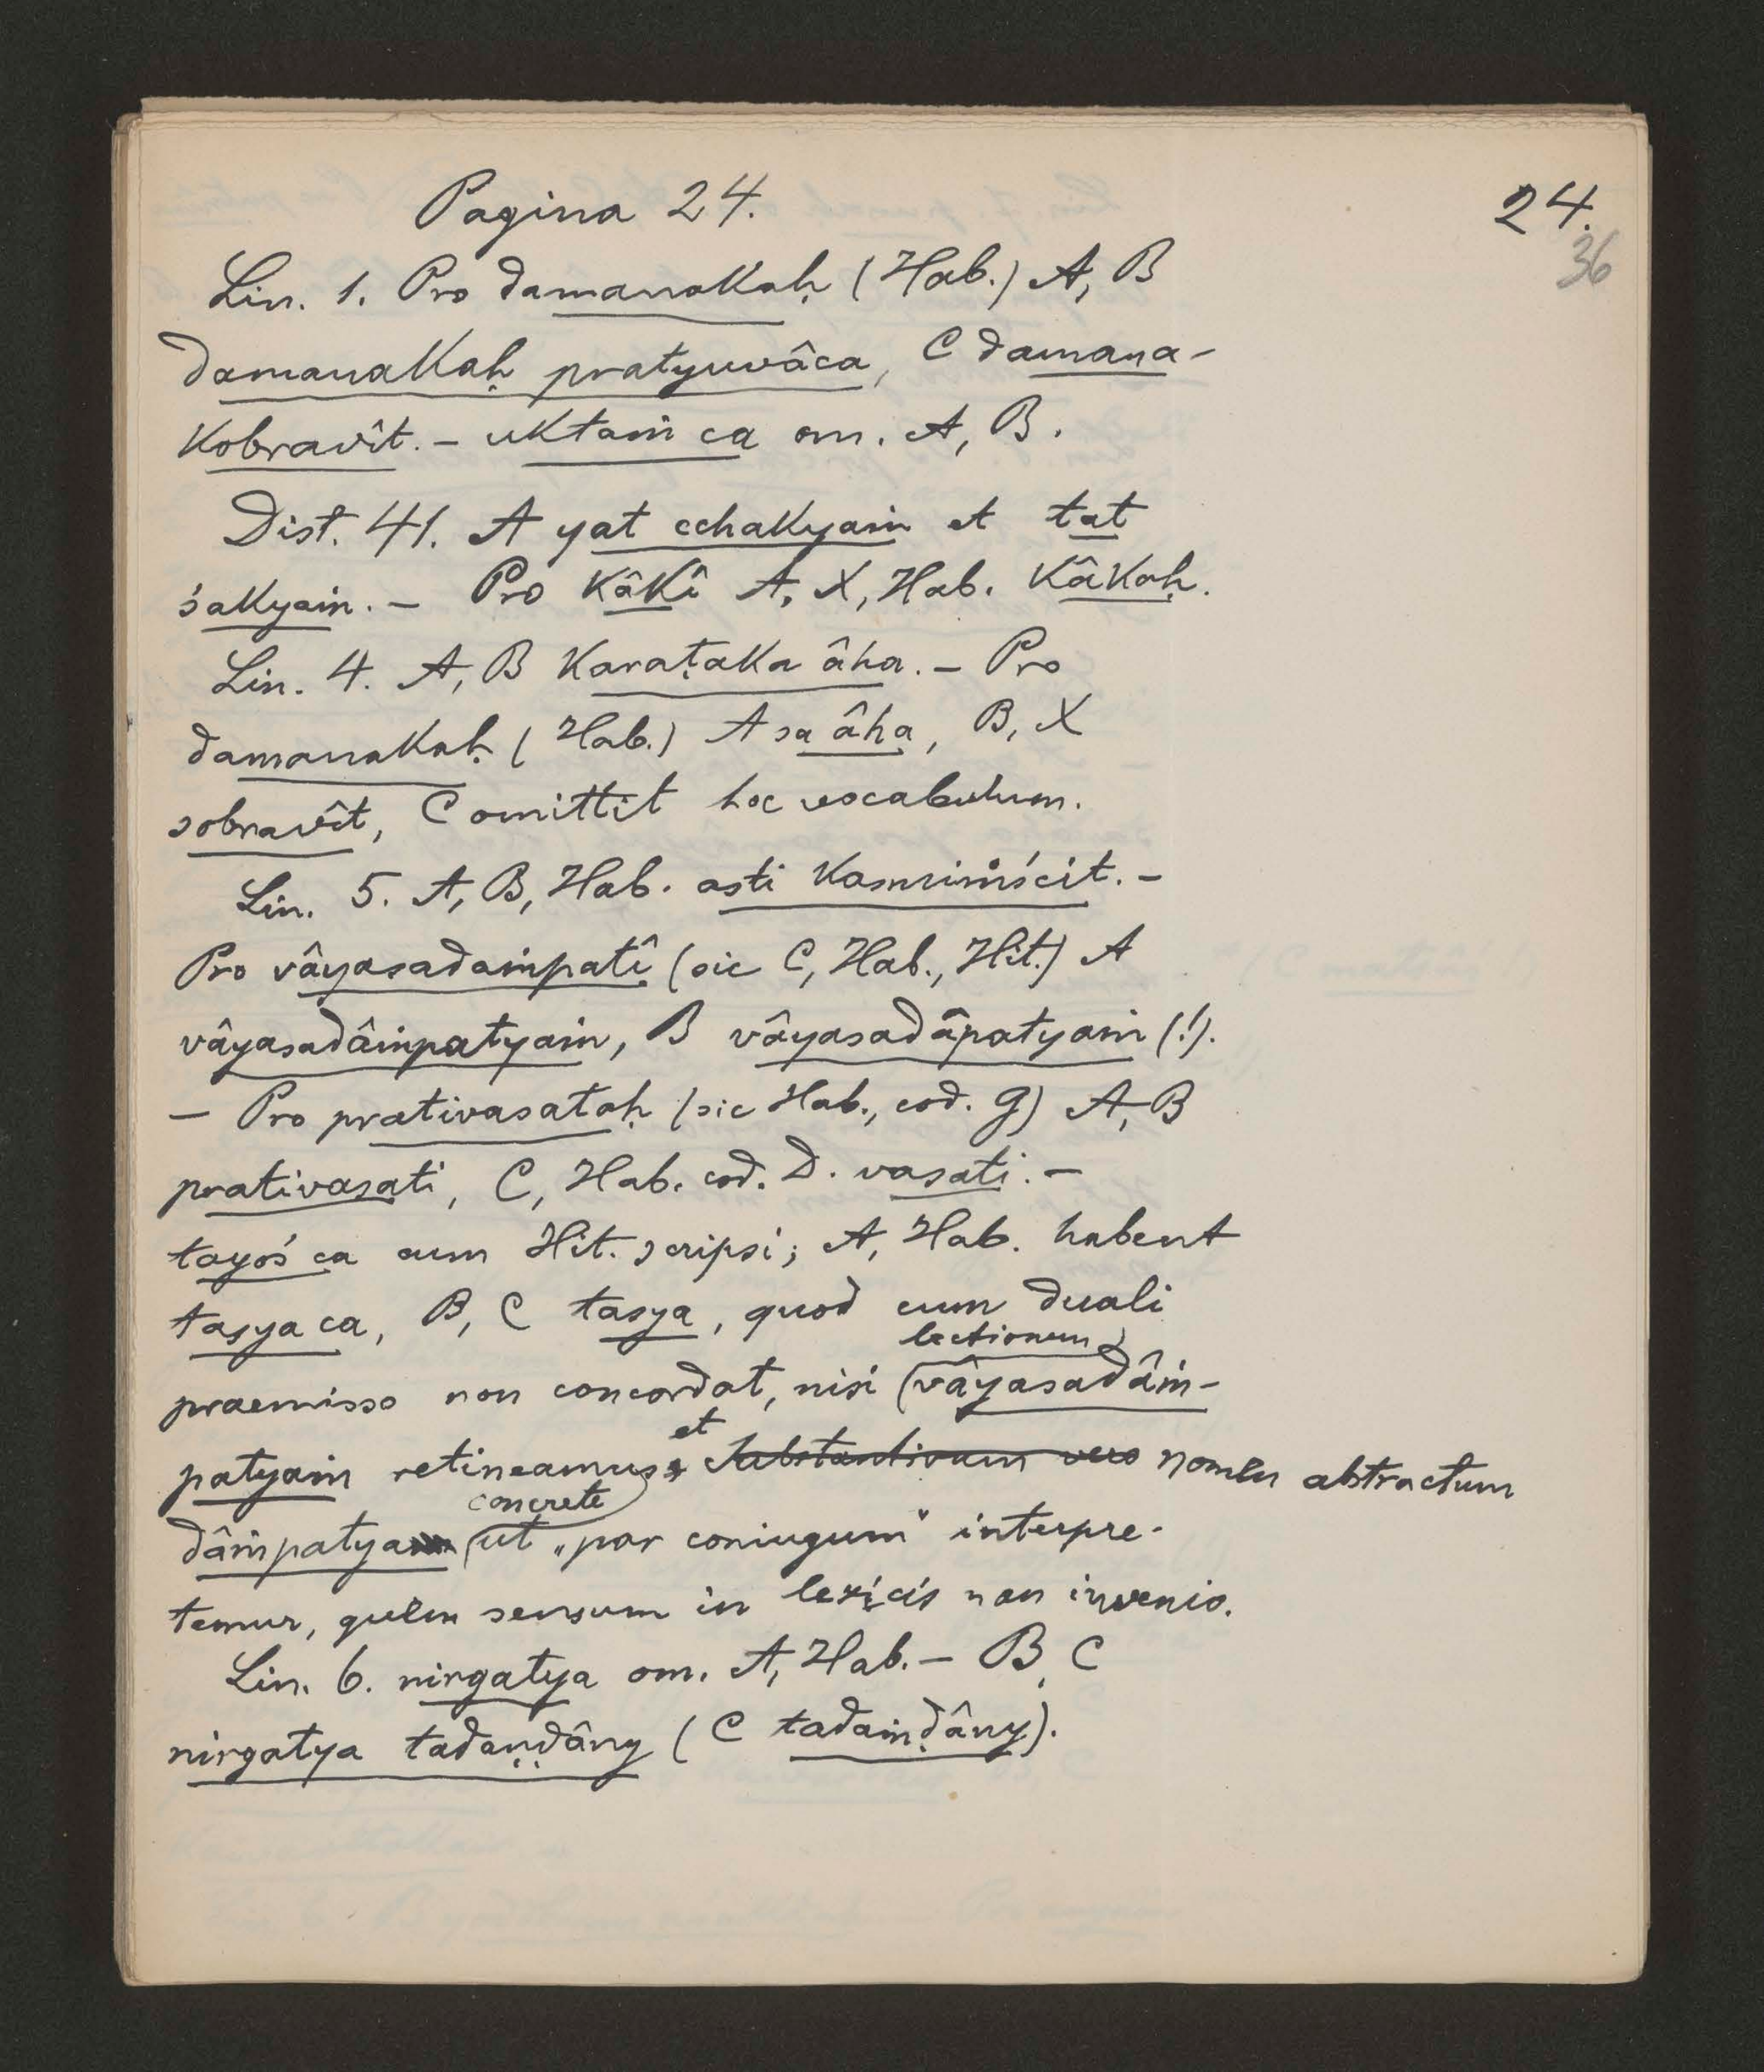 Pagina 24.
24.
36
Lin. 1. Pro damanakaḥ (Hab.) A, B
damanakaḥ pratyuvâca, C damana-
kobravît. – uktaṁ ca om. A, B.
Dist. 41. A yat cchakyaṁ et tat
śakyaṁ. – Pro kâkî A, X, Hab. kâkaḥ.
Lin. 4. A, B karaṭaka âha. – Pro
damanakaḥ (Hab.) A sa âha, B, X
sobravît, C omittit hoc vocabulum.
Lin. 5. A, B, Hab. asti kasmiṁścit. –
Pro vâyasadaṁpatî (sic C, Hab., Hit.) A
vâyasadâṁpatyaṁ, B vâyasadâpatyaṁ (!).
– Pro prativasataḥ (sic Hab., cod. G) A, B
prativasati, C, Hab. cod. D. vasati. –
tayoś ca cum Hit. scripsi; A, Hab. habent
tasya ca, B, C tasya, quod cum duali
lectionem
praemisso non concordat, nisi vâyasadâṁ-
et
patyaṁ retineamus substantivum vero nomen abstractum
concrete
dâṁpatya ut „par coniugum“ interpre-
temur, quem sensum in lexicis non invenio.
Lin. 6. nirgatya om. A, Hab. – B, C
nirgatya tadaṇḍâny (C tadaṁḍâny).